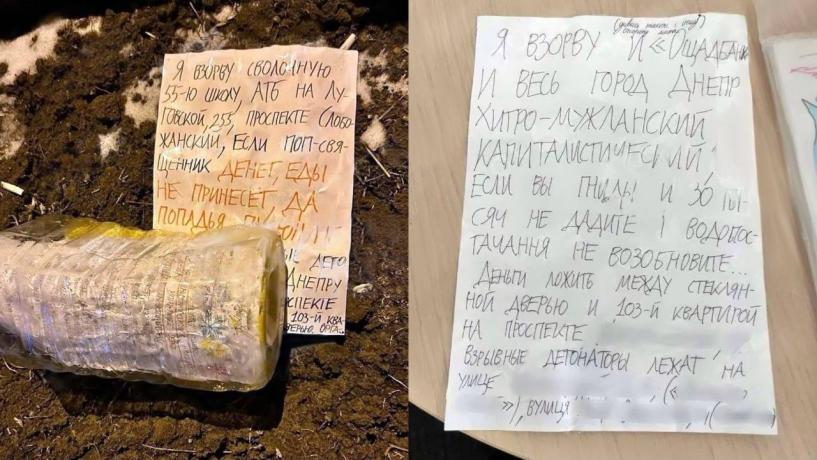 Я ВЗОРВУ СВОЛОЧНУЮ
55-Ю ШКОЛУ, АТБ НА ЛУ-
ГОВСКОЙ, 255, ПРОСПЕКТЕ СЛОБО-
ЖАНСКИЙ, ЕСЛИ ПОП-СВЯ-
ЩЕННИК ДЕНЕГ, ЕДЫ
НЕ ПРИНЕСЁТ, ДА
ПОПАДЬЯ
ДЕТО
ДНЕПРУ
103-Й КВА
ДВЕРЬЮ
Я ВЗОРВУ И «ОЩАДБАНК
И ВЕСЬ ГОРОД ДНЕПР
ХИТРО-МУЖЛАНСКИЙ
КАПИТАЛИСТИЧЕСКИЙ!
ЕСЛИ ВЫ И 30 ТЫ-
СЯЧ НЕ ДАДИТЕ І ВОДОПОС-
ТАЧАННЯ НЕ ВОЗОБНОВИТЕ...
ДЕНЬГИ ЛОЖИТЬ МЕЖДУ СТЕКЛЯН-
НОЙ ДВЕРЬЮ И 103-Й КВАРТИРОЙ
НА ПРОСПЕКТЕ
ВЗРЫВНЫЕ ДЕТОНАТОРЫ ЛЕЖАТ НА
УЛИЦЕ («
»), ВУЛИЦЯ (